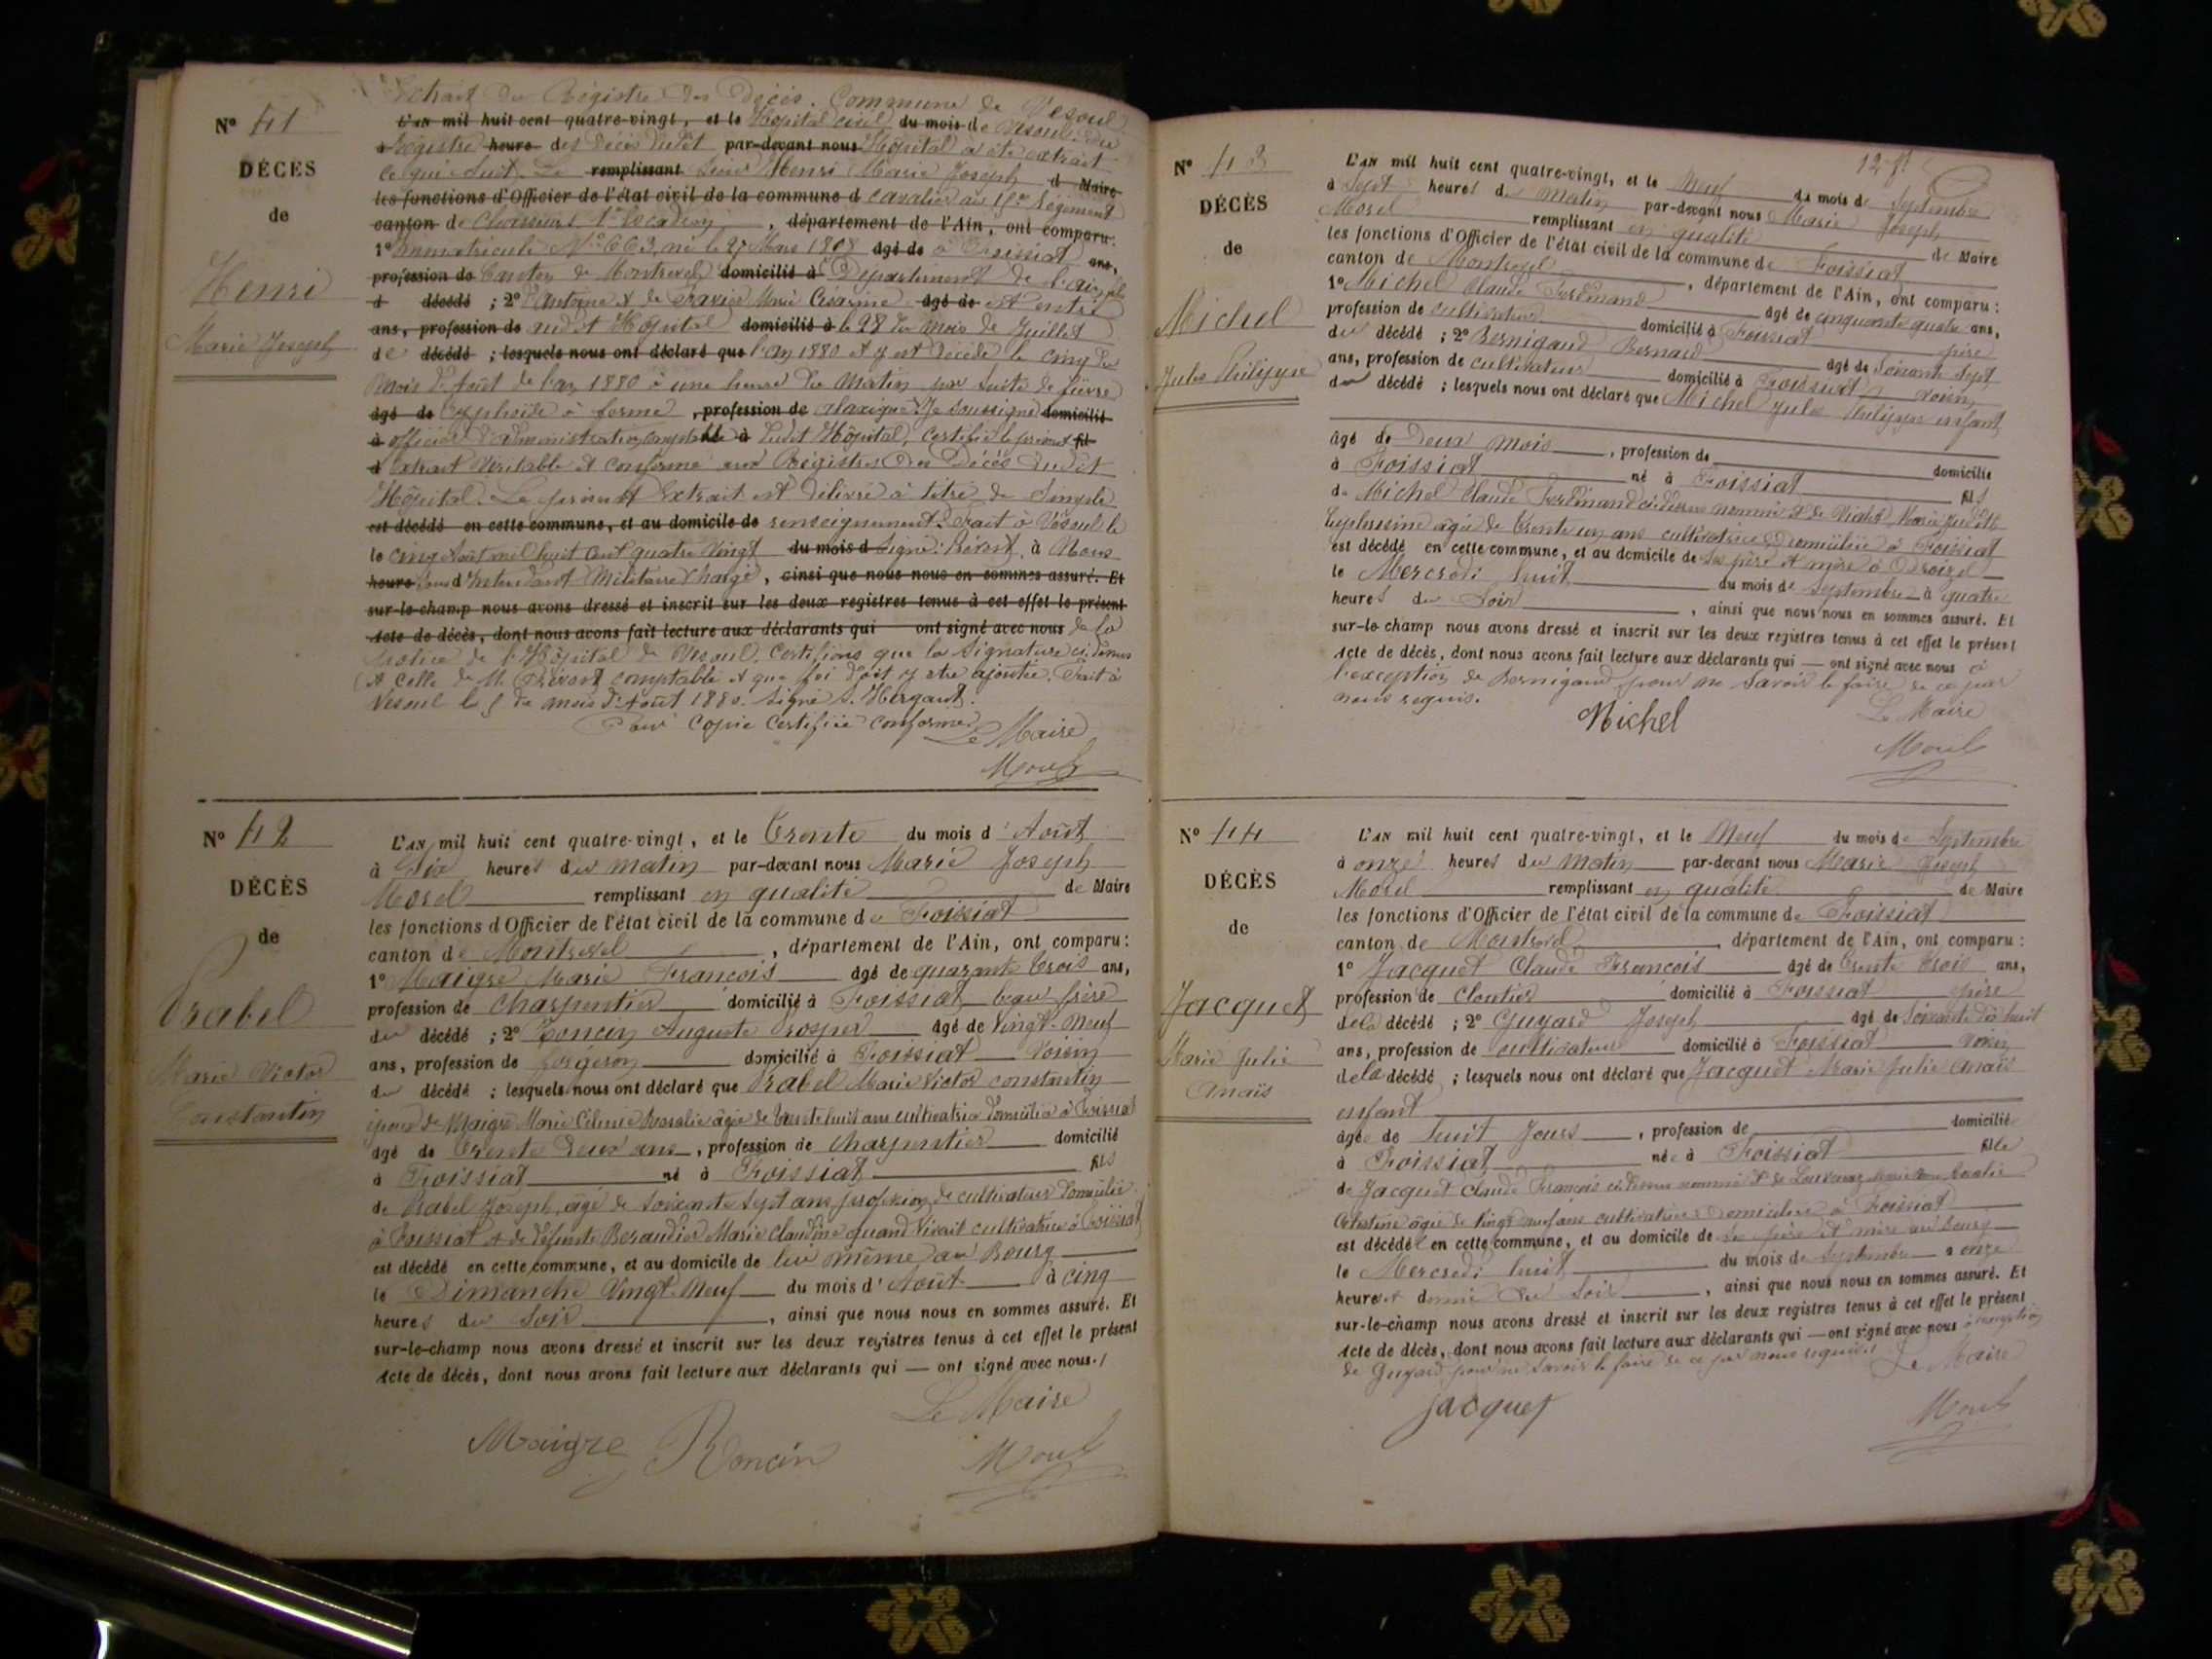 Extrait du Régistre des Décès. Commune de Vesoul
N° 41
L'AN mil huit cent quatre-vingt, et le Hôpital civil du mois de Vesoul. Du
à Régistre heure des Décès dudit par-devant nous Hôpital a été extrait
DÉCÈS
ce qui suit. Le remplissant Sieur Henri Marie Joseph d Maire
de
les fonctions d'Officier de l'état civil de la commune d cavalier au Régiment
canton de Chasseurs , département de l'Ain, ont comparu:
1° Immatriculé N° 663, né le 27 Mars âgé de à Foissiat ans,
Henri
profession de Canton de Montrevel domicilié à Département de l'ain
d décédé ; 2° d'antoine & de Marie Césarine âgé de est entré
ans, profession de audit Hôpital domicilié à le 28 du mois de Juillet
Marie Joseph
de décédé ; lesquels nous ont déclaré que l'an 1880 & y est Décédé le cinq du
Mois d'Août de l'an 1880 à une heure du Matin par suite de fièvre
âgé de typhoïde à forme , profession de ataxique. Je soussigné domicilié
à officier d'administration comptable à dudit Hôpital, certifie le présent fil
d extrait Véritable & conforme aux Régistres des Décès dudit
Hôpital. Le présent Extrait est délivré à titre de Simple
est décédé en cette commune, et au domicile de renseignement. Fait à Vesoul le
le cinq Août mil huit cent quatre Vingt du mois d signé: à Nous
heure Sous d'Intendant Militaire chargé, ainsi que nous nous en sommes assuré. Et
sur-le-champ nous avons dressé et inscrit sur les deux registres tenus à cet effet le présent
acte de décès, dont nous avons fait lecture aux déclarants qui ont signé avec nous de la
police de l'Hôpital de Vesoul, certifions que la Signature ci dessus
est celle de M. comptable & que foi doit y être ajoutée. Fait à
Vesoul le 5 du mois d'Août 1880. Signé
Pour copie certifiée conforme
Le Maire
Morel
N° 42
L'AN mil huit cent quatre-vingt, et le Trente du mois d'Août
à Six heures du matin par-devant nous Marie Joseph
DÉCÈS
Morel remplissant en qualité de Maire
les fonctions d'Officier de l'état civil de la commune de Foissiat
de
canton de Montrevel , département de l'Ain, ont comparu:
1° Maigre Marie François âgé de quarante trois ans,
Prabel
profession de charpentier domicilié à Foissiat beau frère
du décédé ; 2° Roncin Auguste Prosper âgé de Vingt-Neuf
ans, profession de forgeron domicilié à Foissiat Voisin
Marie Victor
du décédé ; lesquels nous ont déclaré que Prabel Marie Victor constantin
Constantin
époux de Maigre Marie âgée de trente huit ans cultivatrice domiciliée à Foissiat
âgé de trente deux ans, profession de charpentier domicilié
à Foissiat né à Foissiat fils
de Prabel Joseph, âgé de soixante sept ans profession de cultivateur domicilié
à Foissiat & de défunte Beraudier Marie Claudine quand vivait cultivatrice à Foissiat
est décédé en cette commune, et au domicile de lui même au Bourg
le Dimanche Vingt-Neuf du mois d'Août à cinq
heures du soir , ainsi que nous nous en sommes assuré. Et
sur-le-champ nous avons dressé et inscrit sur les deux registres tenus à cet effet le présent
acte de décès, dont nous avons fait lecture aux déclarants qui — ont signé avec nous./
Le Maire
Maigre Roncin Morel
12
N° 43
L'AN mil huit cent quatre-vingt, et le Neuf du mois de Septembre
à Sept heures du matin par-devant nous Marie Joseph
DÉCÈS
Morel remplissant en qualité de Maire
les fonctions d'Officier de l'état civil de la commune de Foissiat
de
canton de Montrevel , département de l'Ain, ont comparu:
1° Michel Claude Ferdinand âgé de cinquante quatre ans,
Michel
profession de cultivateur domicilié à Foissiat père
du décédé ; 2° Bernigaud Bernard âgé de Soixante Sept
Jules Philippe
ans, profession de cultivateur domicilié à Foissiat Voisin
du décédé ; lesquels nous ont déclaré que Michel Jules Philippe enfant
âgé de Deux mois , profession de domicilié
à Foissiat né à Foissiat fils
de Michel Claude Ferdinand ci dessus nommé & de Marie Judith
âgée de trente un ans cultivatrice domiciliée à Foissiat
est décédé en cette commune, et au domicile de ses père & mère à
le Mercredi huit du mois de Septembre à quatre
heures du Soir , ainsi que nous nous en sommes assuré. Et
sur-le-champ nous avons dressé et inscrit sur les deux registres tenus à cet effet le présent
acte de décès, dont nous avons fait lecture aux déclarants qui — ont signé avec nous à
l'exception de Bernigaud pour ne savoir le faire de ce par
nous requis.
Michel
Le Maire
Morel
N° 44
L'AN mil huit cent quatre-vingt, et le Neuf du mois de Septembre
à onze heures du matin par-devant nous Marie Joseph
DÉCÈS
Morel remplissant en qualité de Maire
les fonctions d'Officier de l'état civil de la commune de Foissiat
de
canton de Montrevel , département de l'Ain, ont comparu:
1° Jacquet Claude François âgé de trente trois ans,
Jacquet
profession de cloutier domicilié à Foissiat père
de la décédé ; 2° Guyard Joseph âgé de Soixante dix huit
Marie Julie
ans, profession de cultivateur domicilié à Foissiat voisin
Anaïs
de la décédé ; lesquels nous ont déclaré que Jacquet Marie Julie Anaïs
enfant
âgée de huit Jours , profession de domicilié
à Foissiat née à Foissiat fille
de Jacquet Claude François ci dessus nommé & de
âgée de Vingt neuf ans cultivatrice domiciliée à Foissiat
est décédée en cette commune, et au domicile de ses père & mère au bourg
le Mercredi huit du mois de Septembre à onze
heures & demie du Soir , ainsi que nous nous en sommes assuré. Et
sur-le-champ nous avons dressé et inscrit sur les deux registres tenus à cet effet le présent
acte de décès, dont nous avons fait lecture aux déclarants qui — ont signé avec nous à l'exception
de Guyard pour ne savoir le faire de ce par nous requis.
Le Maire
jacquet
Morel